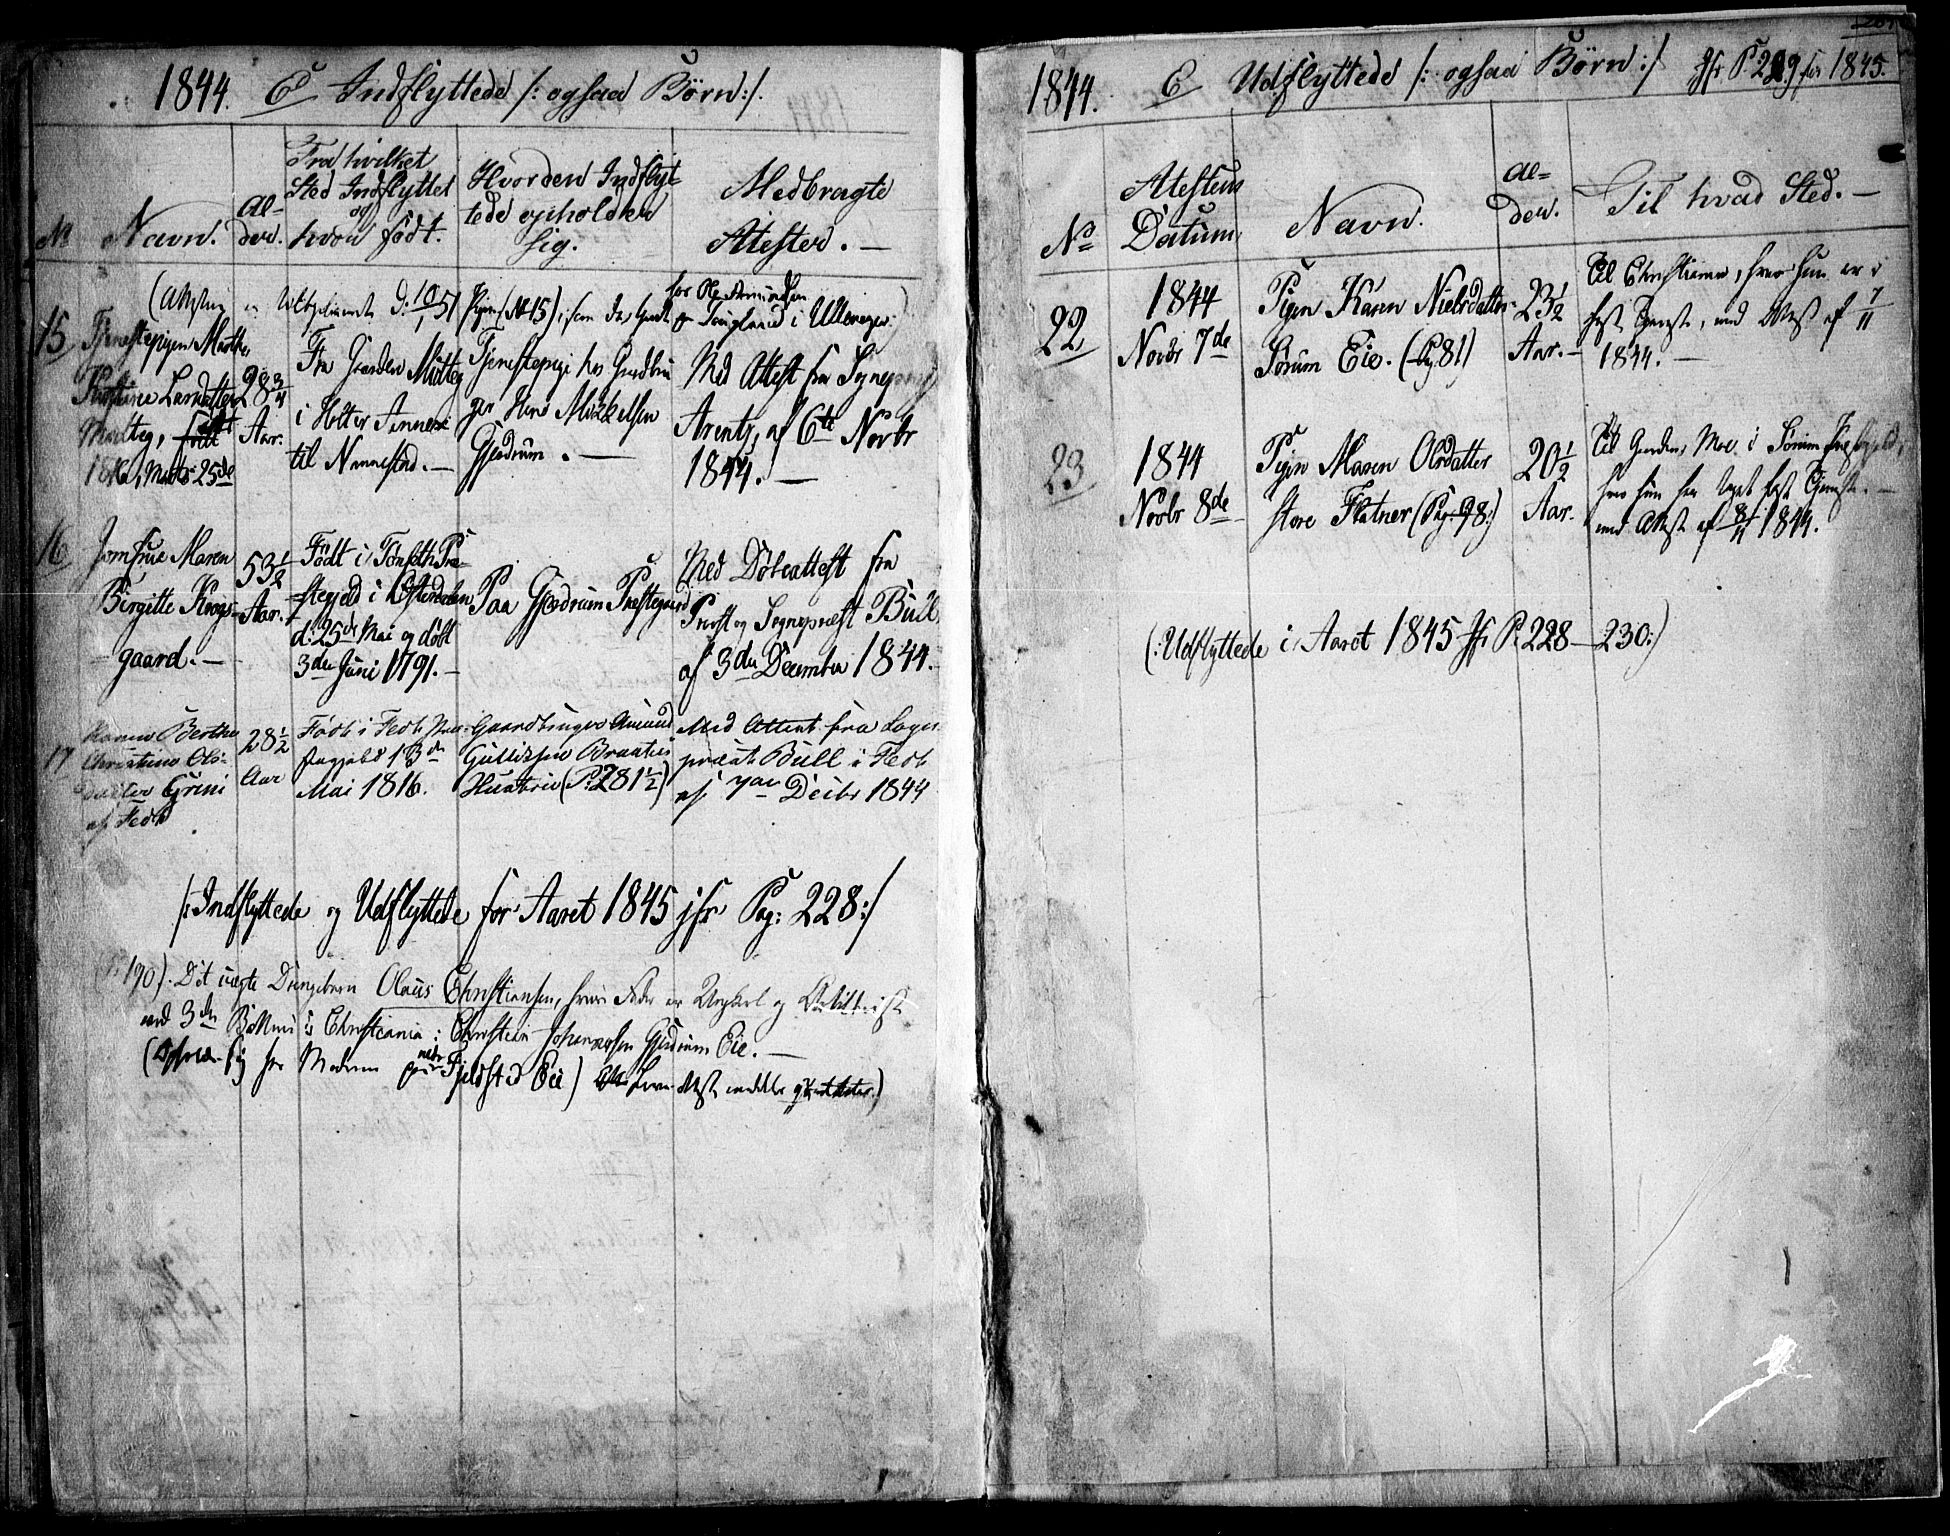 1844. C Indflyttede /: ogsaa Börn:/.
No Navn. Al-
der. Fra hvilket
Sted Indflyttet
og
hvor født. Hvor den Indflyt-
tede opholder
sig. Medbragte
Attester. —
15
Tjenestepigen Marthe
Larsdatter
28 3/4
Aar.
Fra Gaarden
i Holter Annex
til Nannestad. —
Tjenestepige hos Gaardbru-
ger Hans Mikkelsen
Gjerdrum. —
Med Attest fra Sogneprest
Arentz, af 6te Novbr
1844. —
16
Jomfrue Maren
Birgitte Krogs-
gaard. —
53 1/2
Aar.
Födt i Tönseth Præ-
stegjeld i Österdalen
d: 25de Mai og döbt
3die Juni 1791. —
Paa Gjerdrum Præstegaard
Med Döbeattest fra
Provst og Sogneprest Bull
af 3die December 1844. —
17
Karen Berthe
Christine Ols-
datter Grini
af Fedt
28 1/2
Aar
Födt i Fedt Præ-
stegjeld 13de
Mai 1816.
Gaardbruger Amund
Gulliksen Braateis
Hustrue (P: 281 1/2)
Med Attest fra Sogne-
præst Bull i Fedt
af 7de Decbr 1844
/: Indflyttede og Udflyttede for Aaret 1845 jfr Pag: 228:/
190). Det uægte Drengebarn Olaus Christiansen, hvis Fader er Ungkarl og Artillerist
ved 3die i Christiania: Christian Johannesen Gjerdrum Eie. —
(Opholder sig hos Moderen Eie)
1844. C Udflyttede /: ogsaa Börn:/ Jfr P. 229 for 1845.
No Attestens
Datum. Navn. Al-
der. Til hvad Sted. —
22
1844
Novbr 7de
Pigen Karen Nielsdatter
Sörum Eie. (Pag. 81)
23 1/2
Aar. —
Til Christiania, hvor hun er i
fast Tjeneste, med Attest af 7/11
1844. —
23
1844
Novbr 8de
Pigen Maren Olsdatter
store Flatner (Pag. 98:)
20 1/2
Aar.
Til Gaarden Moe i Sörum Præstegjeld,
hvor hun har taget fast Tjeneste. —
med Attest af 8/11 1844.
(: Udflyttede i Aaret 1845 Jfr P: 228 — 230:)